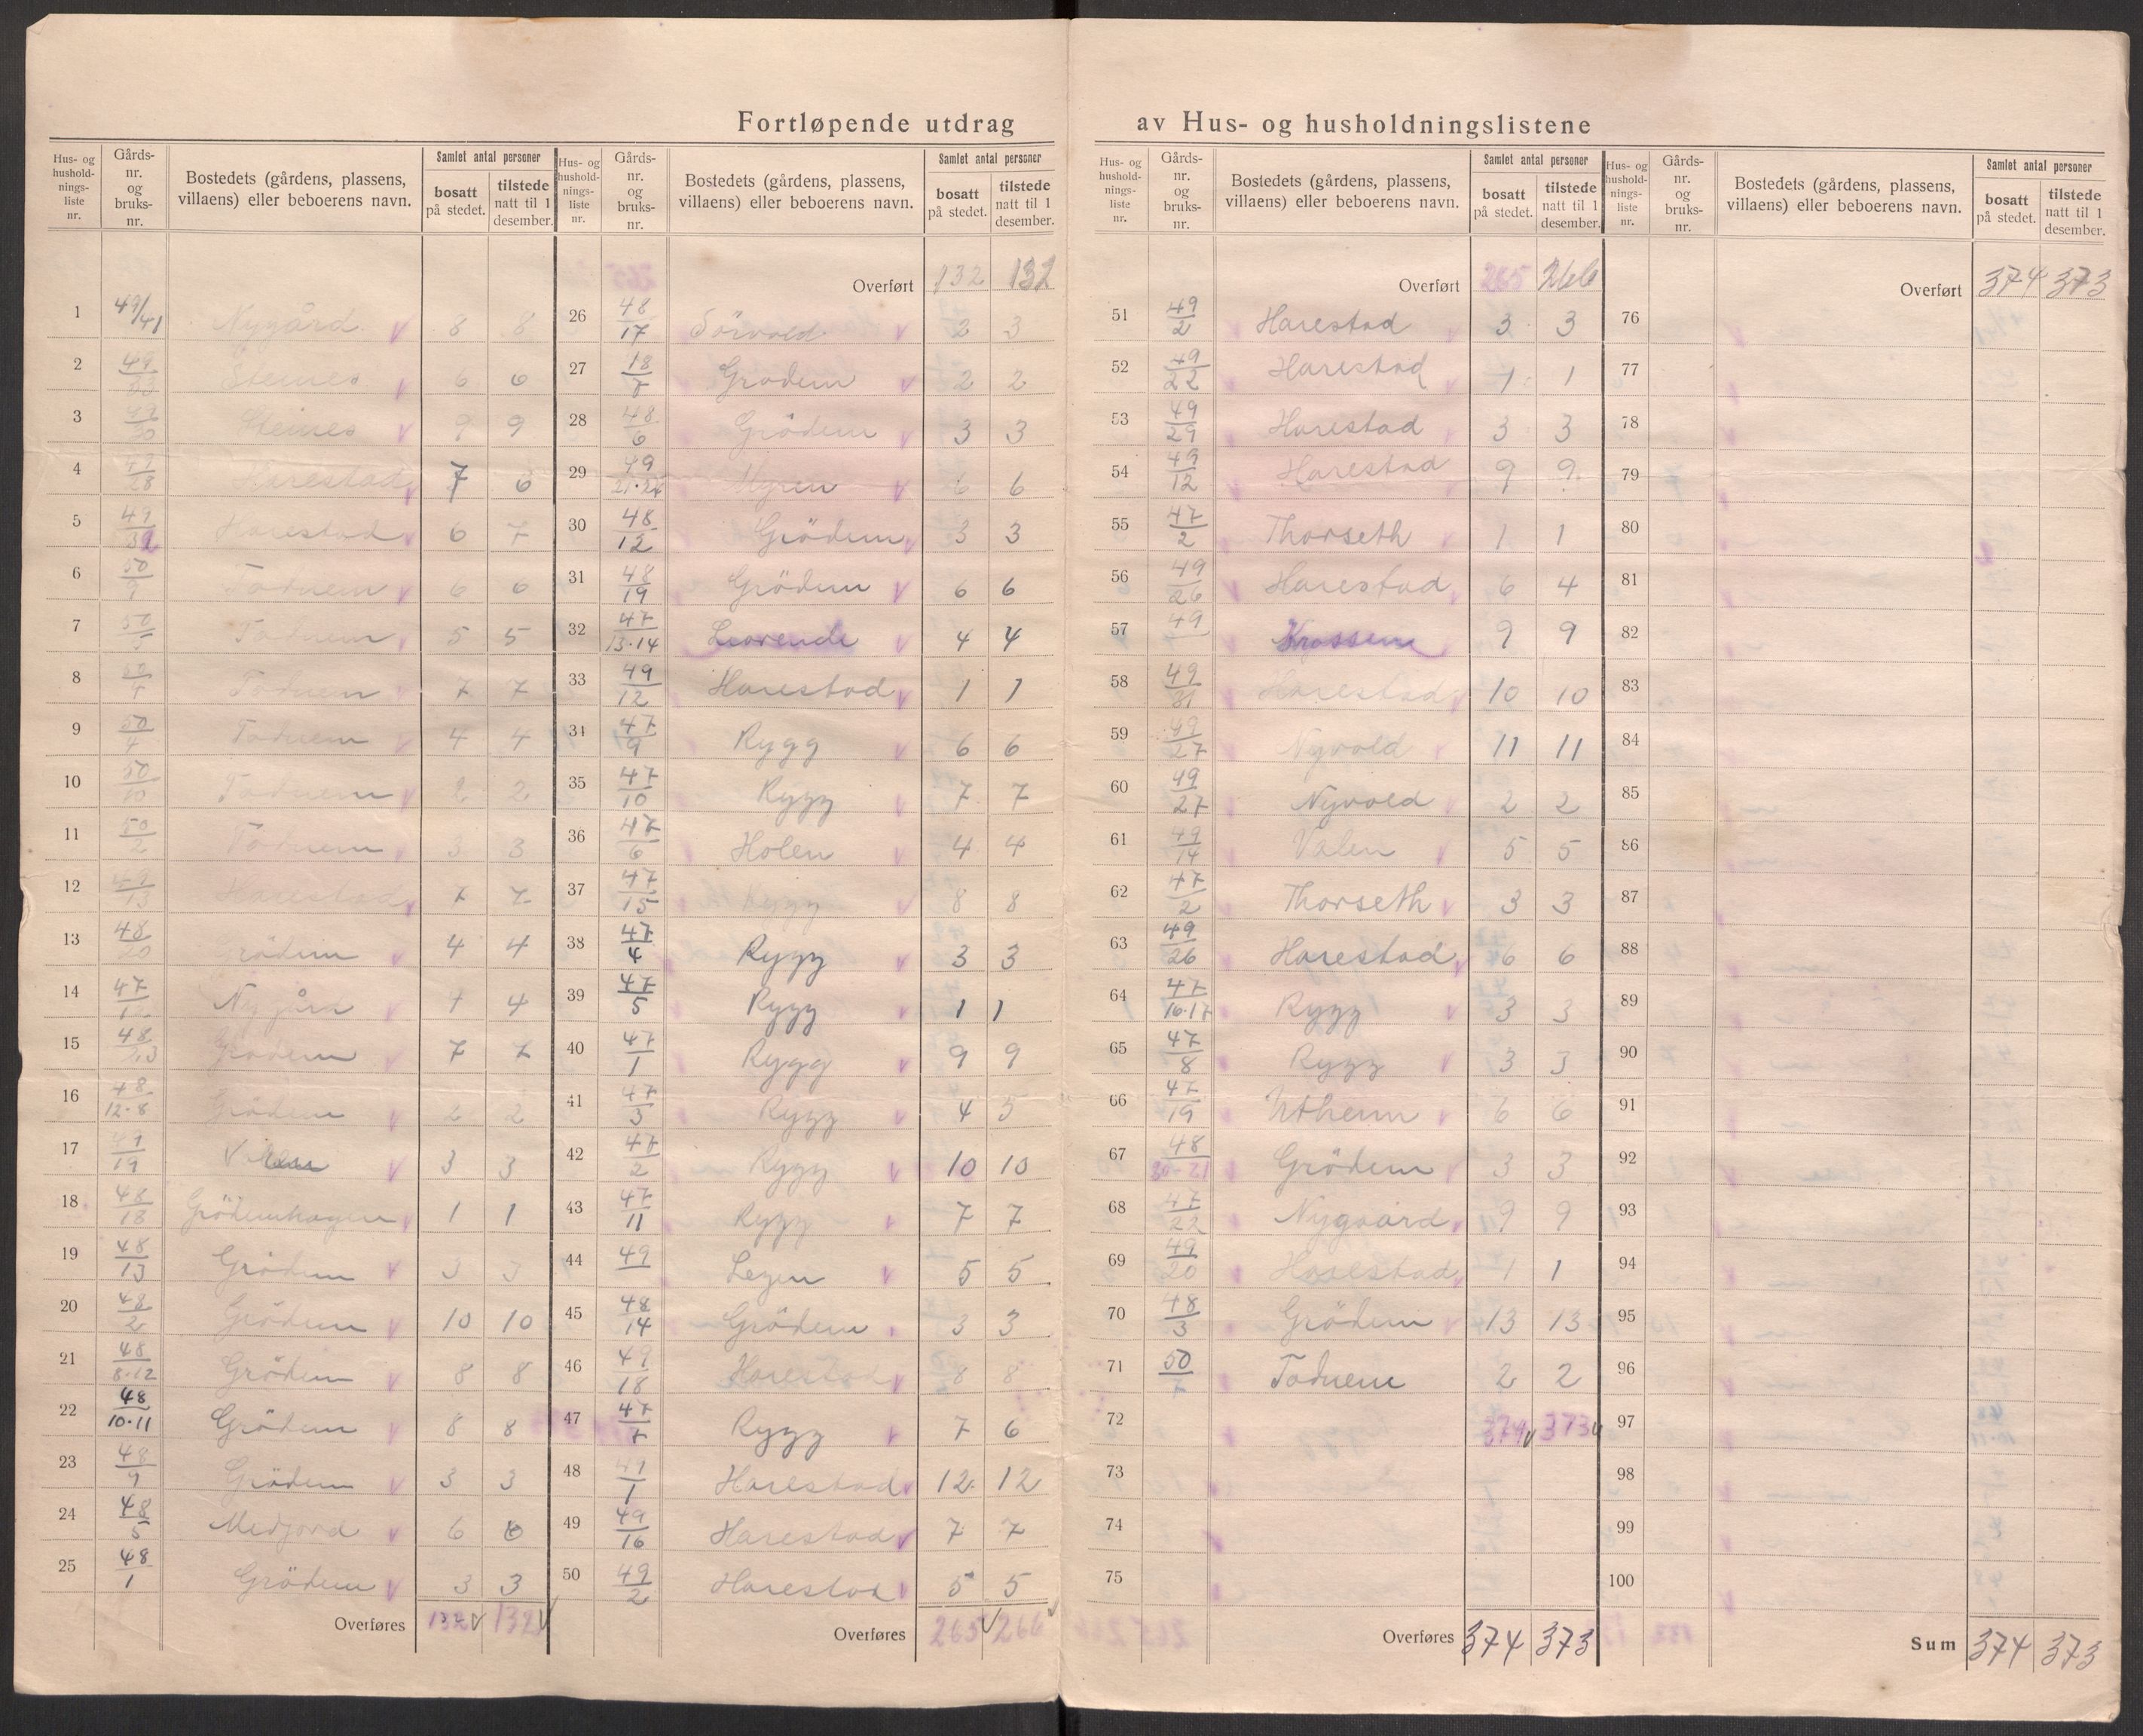 Fortløpende utdrag av Hus- og husholdningslistene
Hus- og husholdningsliste nr. Gårdsnr. og bruksnr. Bostedets (gårdens, plassens, villaens) eller beboerens navn. Samlet antal personer bosatt på stedet. tilstede natt til 1 desember.
1 49/41 Nygård 8 8
2 49 Steines 6 6
3 49/30 Steines 9 9
4 49/28 Harestad 7 6
5 49 Harestad 6 7
6 50 Todnem 6 6
7 50/5 Todnem 5 5
8 50 Todnem 7 7
9 50/4 Todnem 4 4
10 50/10 Todnem 2 2
11 50/2 Todnem 3 3
12 49/13 Harestad 7 7
13 48/20 Grödem 4 4
14 47 Nygård 4
15 48 Grödem 7 7
16 48/12-8 Grödem 2 2
17 49/19 3 3
18 48/18 Grödemhagen 1 1
19 48/13 Grödem 3 3
20 48/2 Grödem 10 10
21 48/8-12 Grödem 8 8
22 48/10-11 Grödem 8 8
23 48/9 Grödem 3 3
24 48/5 Medjord 6 6
25 48/1 Grödem 3 3
Overføres 132 132
Hus- og husholdningsliste nr. Gårdsnr. og bruksnr. Bostedets (gårdens, plassens, villaens) eller beboerens navn. Samlet antal personer bosatt på stedet. tilstede natt til 1 desember.
Overført 132 132
26 48/17 Sörvold 2 3
27 18 Grodem 2 2
28 48/6 Grödem 3 3
29 49/21-24 Myren 6 6
30 48/12 Grödem 3 3
31 48/19 Grödem 6 6
32 47/13-14 4 4
33 49/12 Harestad 1 1
34 47/9 Rygg 6 6
35 47/10 Rygg 7 7
36 47/6 Holen 4 4
37 47/15 Rygg 8 8
38 47/4 Rygg 3 3
39 47/5 Rygg 1 1
40 47/1 Rygg 9 9
41 47/3 Rygg 4 5
42 47/2 Rygg 10 10
43 47/11 Rygg 7 7
44 49 5 5
45 48/14 Grödem 3 3
46 49/18 Harestad 8 8
47 47/7 Rygg 7 6
48 1 Harestad 12 12
49 49/16 Harestad 7 7
50 49/2 Harestad 5 5
Overføres 265 266
Hus- og husholdningsliste nr. Gårdsnr. og bruksnr. Bostedets (gårdens, plassens, villaens) eller beboerens navn. Samlet antal personer bosatt på stedet. tilstede natt til 1 desember.
Overført 265 266
51 49/2 Harestad 3 3
52 49/22 Harestad 1 1
53 49/29 Harestad 3 3
54 49/12 Harestad 9 9
55 47/2 Thorseth 1 1
56 49/26 Harestad 6 4
57 49 Krossem 9 9
58 49/31 Harestad 10 10
59 49/27 Nyvold 11 11
60 49/27 Nyvold 2 2
61 49/14 Valen 5 5
62 47/2 Thorseth 3 3
63 49/26 Harestad 6 6
64 47/16-17 Rygg 3 3
65 47/8 Rygg 3 3
66 47/19 Utheim 6 6
67 48/20-21 Grödem 3 3
68 47/22 Nygaard 9 9
69 49/20 Harestad 1 1
70 48/3 Grödem 13 13
71 50/7 Todnem 2 2
72 374 373
73
74
75
Overføres 374 373
Hus- og husholdningsliste nr. Gårdsnr. og bruksnr. Bostedets (gårdens, plassens, villaens) eller beboerens navn. Samlet antal personer bosatt på stedet. tilstede natt til 1 desember.
Overført 374 373
76
77
78
79
80
81
82
83
84
85
86
87
88
89
90
91
92
93
94
95
96
97
98
99
100
Sum 374 373